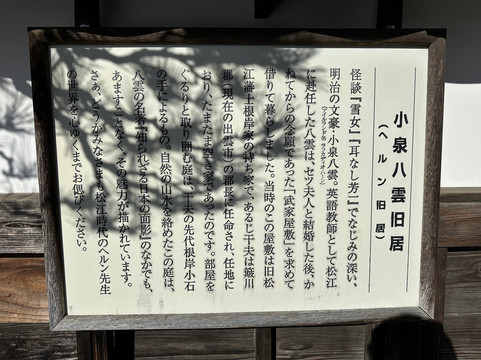 小泉八雲旧居
（ヘルン旧居）
怪談『雪女』『耳なし芳一』でなじみの深い、
明治の文豪・小泉八雲。英語教師として松江
に赴任した八雲は、セツ夫人と結婚した後、か
ねてからの念願であった「武家屋敷」を求めて
借りて暮らしました。当時のこの屋敷は旧松
江藩士根岸家の持ち家で、あるじ干夫は簸川
郡（現在の出雲市）の郡長に任命され、任地に
おり、たまたま空き家であったのです。部屋を
ぐるりと取り囲む庭は、干夫の先代根岸小石
の手によるもの。自然の山水を縮めたこの庭は、
八雲の名著『知られざる日本の面影』のなかでも、
あますことなく、その魅力が描かれています。
さあ、どうかみなさまも松江時代のヘルン先生
の世界を心ゆくまでお偲びください。